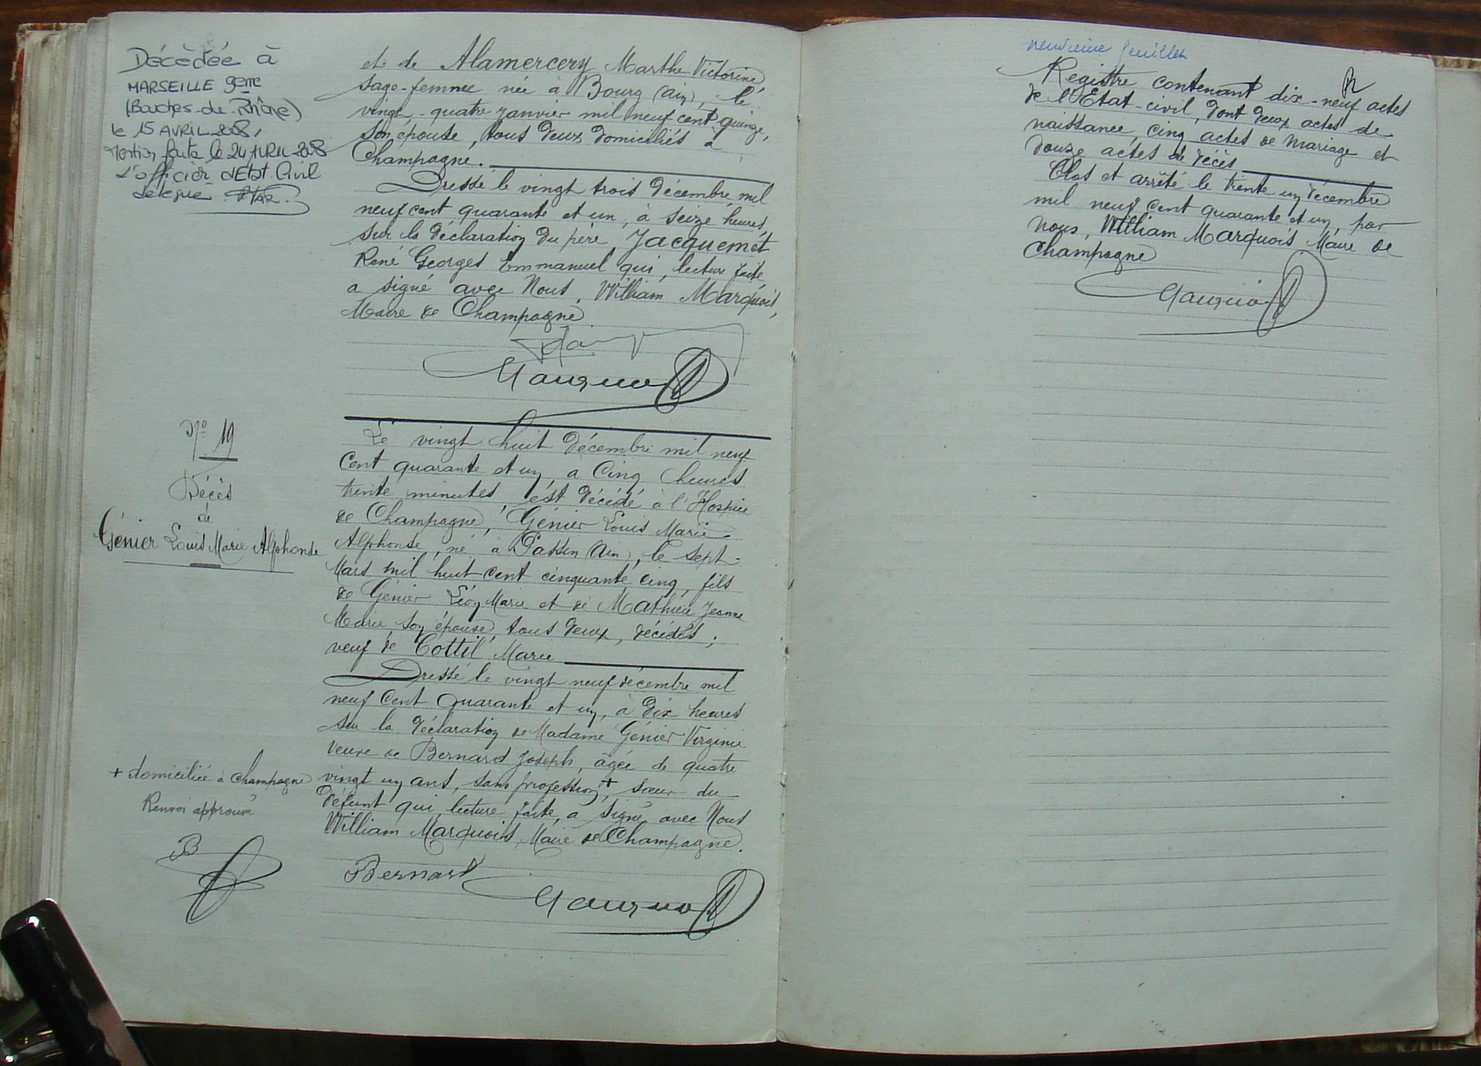 Décédée à
MARSEILLE 9eme
(Bouches-du-Rhône)
le 15 AVRIL 2008,
Mention faite le 24 AVRIL 2008
L'officier d'Etat Civil
délégué
et de Alamercery Marthe Victorine
sage-femme née à Bourg (Ain), le
vingt-quatre janvier mil neuf cent quinze,
son épouse, tous deux domiciliés à
Champagne.
Dressé le vingt trois décembre mil
neuf cent quarante et un, à seize heures,
sur la déclaration du père, Jacquemet
René Georges Emmanuel qui, lecture faite
a signé avec Nous, William Marquois,
Maire de Champagne
No 19
Décès
de
Génier Louis Marie Alphonse
Le vingt huit décembre mil neuf
cent quarante et un, a cinq heures
trente minutes est décédé à l'Hospice
de Champagne, Génier Louis Marie
Alphonse, né à Passin (Ain), le sept
Mars mil huit cent cinquante cinq, fils
de Génier Léon Marie et de Mathieu Jeanne
Marie son épouse, tous deux, décédés;
veuf de Cottil Marie
Dressé le vingt neuf décembre mil
neuf cent quarante et un, à dix heures
sur la déclaration de Madame Génier Virginie
veuve de Bernard Joseph, agée de quatre
vingt un ans, sans profession +, sœur du
défunt qui, lecture faite, a signé avec Nous
William Marquois, Maire de Champagne.
+ domiciliée à Champagne
Renvoi approuvé
B
Bernard
neuvième feuillet
Registre contenant dix-neuf actes
de l'Etat-civil, dont deux actes de
naissance, cinq actes de mariage et
douze actes de décès
Clos et arrêté le trente un décembre
mil neuf cent quarante et un par
nous, William Marquois Maire de
Champagne